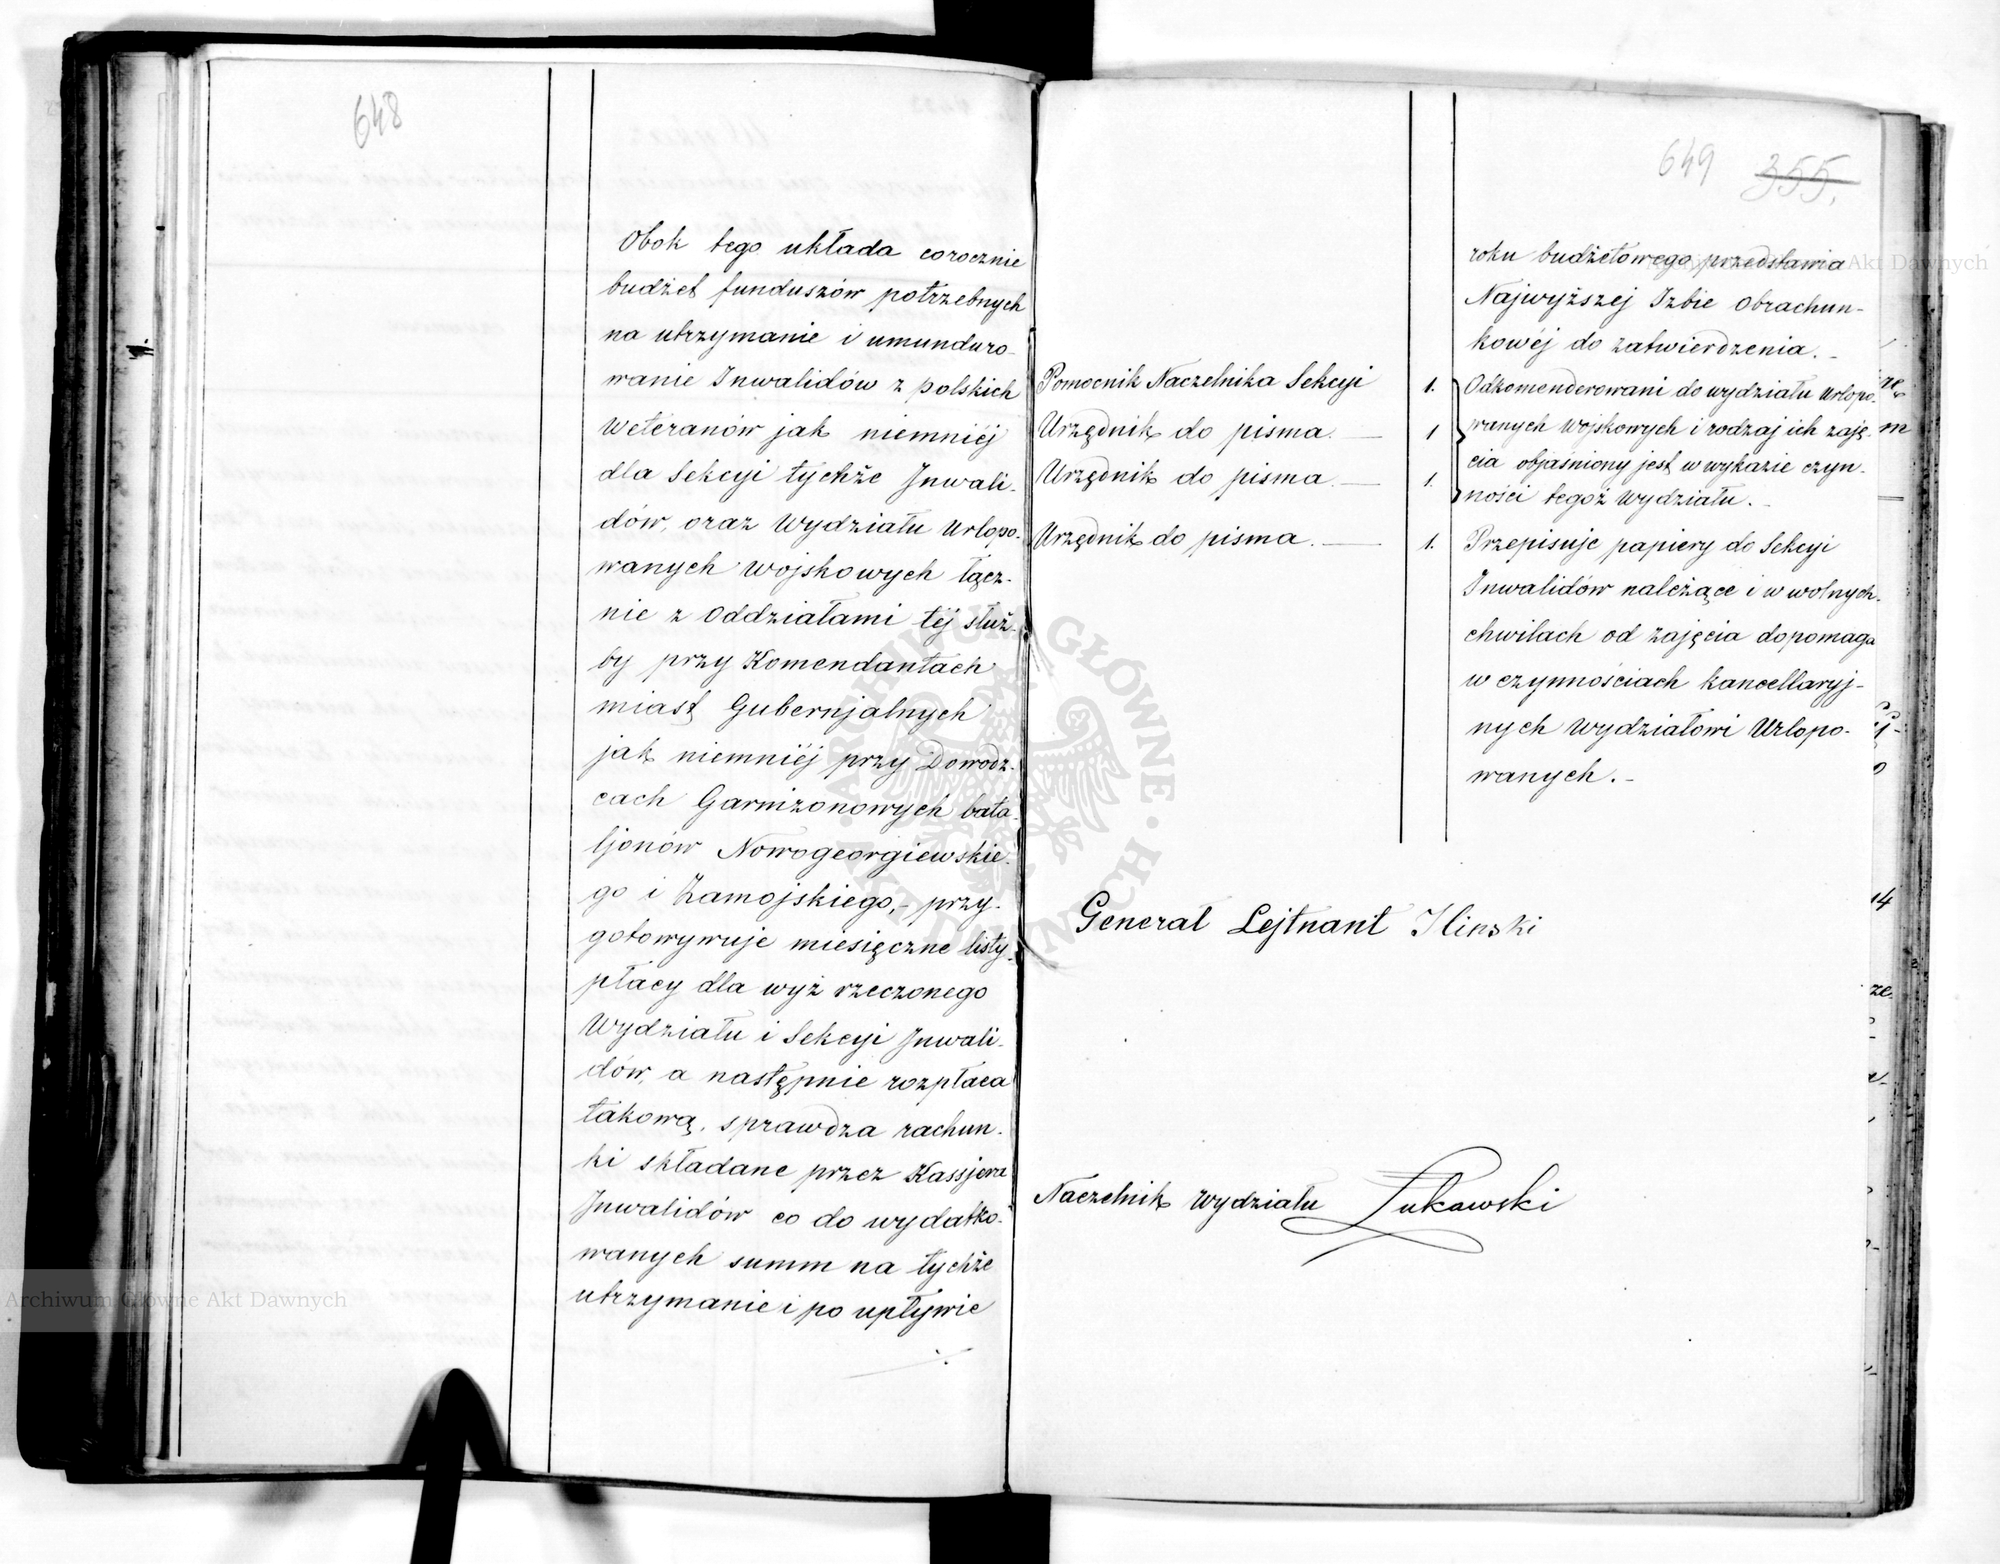 648
Obok tego układa corocznie
budżet funduszów potrzebnych
na utrzymanie i umunduro-
wanie Inwalidów z polskich
Weteranów jak niemniéj
dla Sekcyi tychże Inwali-
dów, oraz Wydziału Urlopo-
wanych Wojskowych łącz-
nie z Oddziałami téj służ-
by przy Komendantach
miast Gubernjalnych
jak niemniéj przy Dowodz-
cach Garnizonowych bata-
ljonów Nowogeorgiewskie-
go i Zamojskiego,- przy-
gotowywuje miesięczne listy
płacy dla wyż rzeczonego
Wydziału i Sekcyi Inwali-
dów, a następnie rozpłaca
takową, sprawdza rachun-
ki składane przez Kassjera
Inwalidów co do wydatko-
wanych summ na tychże
utrzymanie i po upływie
649 355.
roku budżetowego przedstawia
Najwyższej Izbie Obrachun-
kowéj do zatwierdzenia.-
Pomocnik Naczelnika Sekcyi 1.
Urzędnik do pisma. — 1
Urzędnik do pisma — 1.
Odkomenderowani do wydziału Urlopo-
wanych Wojskowych i rodzaj ich zaję-
cia objaśniony jest w wykazie czyn-
ności tegoż Wydziału.-
Urzędnik do pisma. — 1.
Przepisuje papiery do Sekcyi
Inwalidów należące i w wolnych
chwilach od zajęcia dopomaga
w czynnościach kancellaryj-
nych Wydziałowi Urlopo-
wanych.-
Generał Lejtnant Ilinski
Naczelnik Wydziału Łukawski
Archiwum Główne Akt Dawnych
Archiwum Główne Akt Dawnych
ARCHIWUM GŁÓWNE AKT DAWNYCH